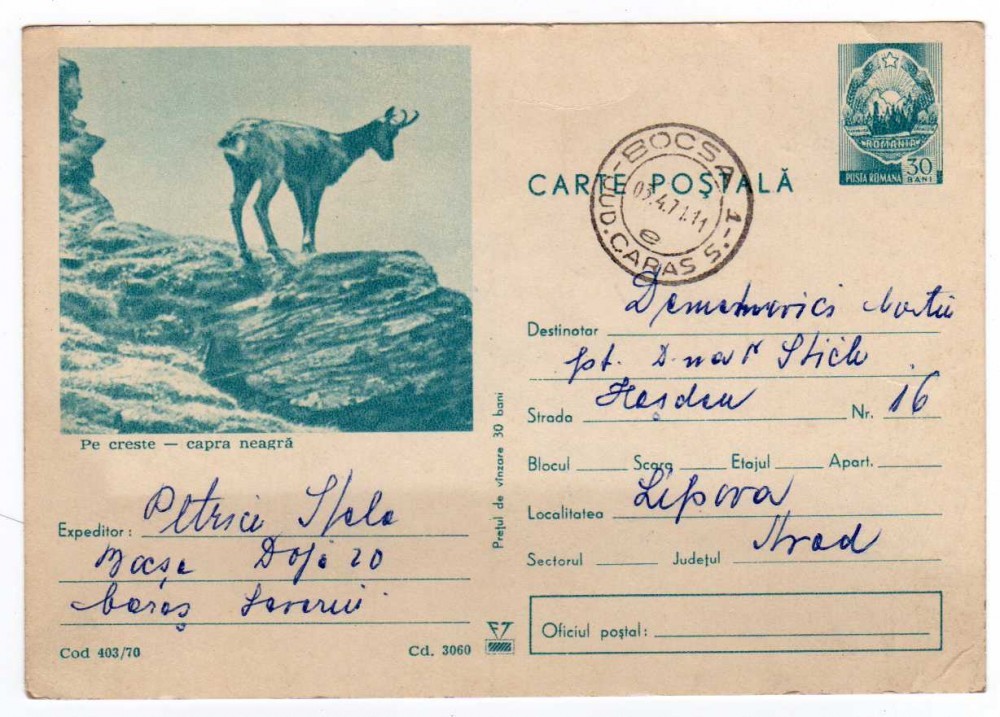 Pe creste — capra neagră
Expeditor: Petrica
Bocșa Doja 20
Caraș Severin
Cod 403/70
Cd. 3060
Prețul de vînzare 30 bani
CARTE POȘTALĂ
ROMÂNIA
POSTA ROMANA 30 BANI
BOCSA 1 - JUD. CARAS S.
e
Destinatar
pt.
Strada Hașdeu Nr. 16
Blocul Scara Etajul Apart.
Localitatea Lipova
Sectorul Județul Arad
Oficiul poștal: